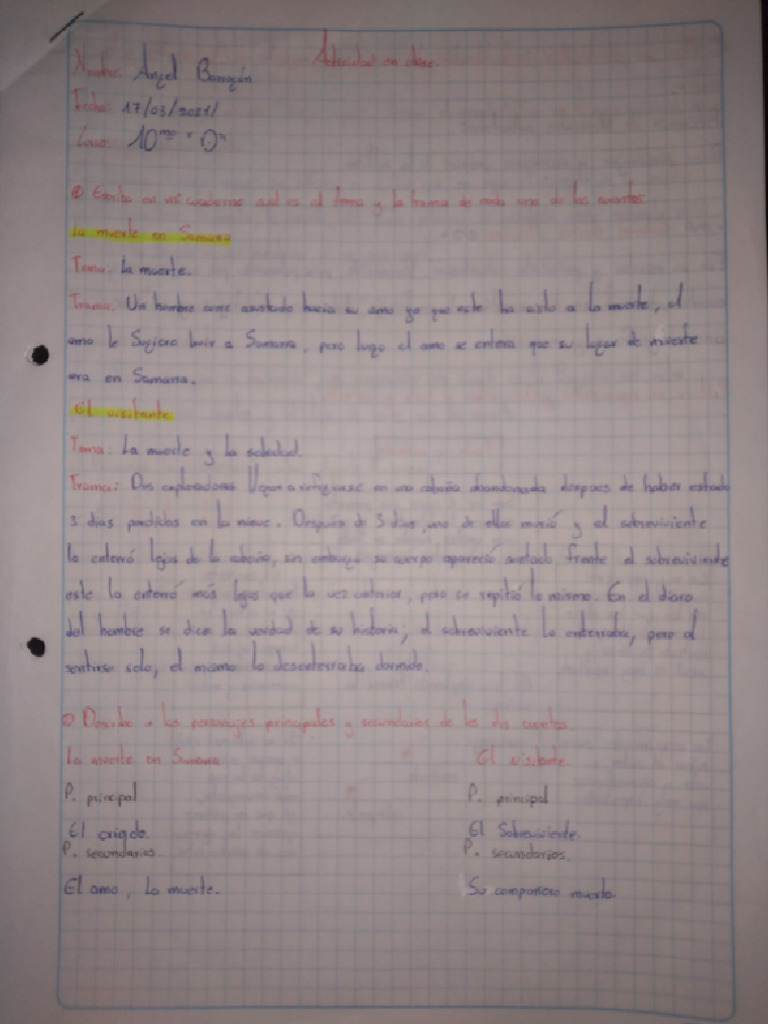 Actividad en clase.
Nombre: Angel Barragán
Fecha: 17/03/2021/
Curso: 10mo "D"
Escribo en mi cuaderno cual es el tema y la trama de cada uno de los cuentos
La muerte en Samarra
Tema: La muerte.
Trama: Un hombre corre asustado hacia su amo ya que este ha visto a la muerte, el
amo le huir a Samarra, pero luego el amo se entera que su lugar de muerte
era en Samarra.
El visitante
Tema: La muerte y la soledad.
Trama: Dos exploradores llegan a en una cabaña abandonada despues de haber estado
3 dias perdidos en la nieve. Después de 3 dias, uno de ellos murió y el sobreviviente
lo enterró lejos de la cabaña, sin embargo su cuerpo apareció sentado frente el sobreviviente
este lo enterró más lejos que la vez anterior, pero se repitió lo mismo. En el diario
del hombre se dice la verdad de su historia, el sobreviviente lo enterraba, pero al
sentirse solo, el mismo lo desenterraba dormido.
Describo a los personajes principales y secundarios de los dos cuentos
La muerte en Samarra El visitante.
P. principal P. principal
El criado. El Sobreviviente.
P. secundarios P. secundarios.
El amo, La muerte. Su compañero muerto.